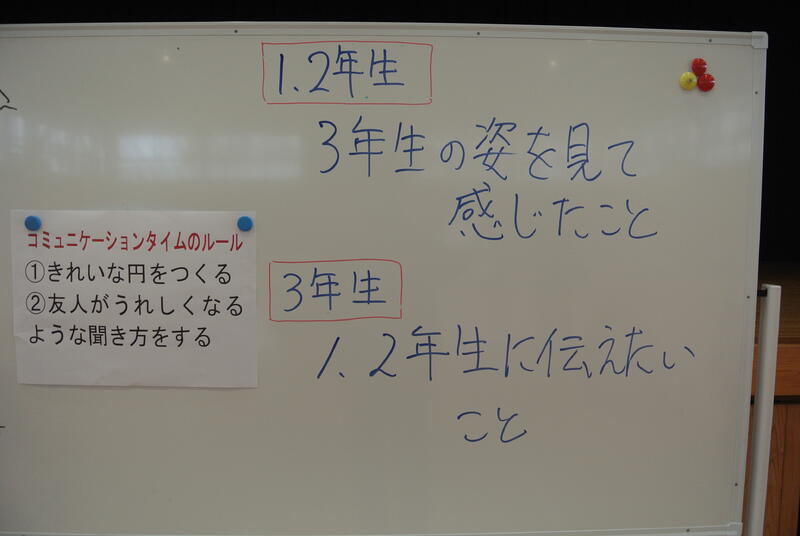 1.2年生
3年生の姿を見て
感じたこと
コミュニケーションタイムのルール
①きれいな円をつくる
②友人がうれしくなる
ような聞き方をする
3年生
1.2年生に伝えたい
こと